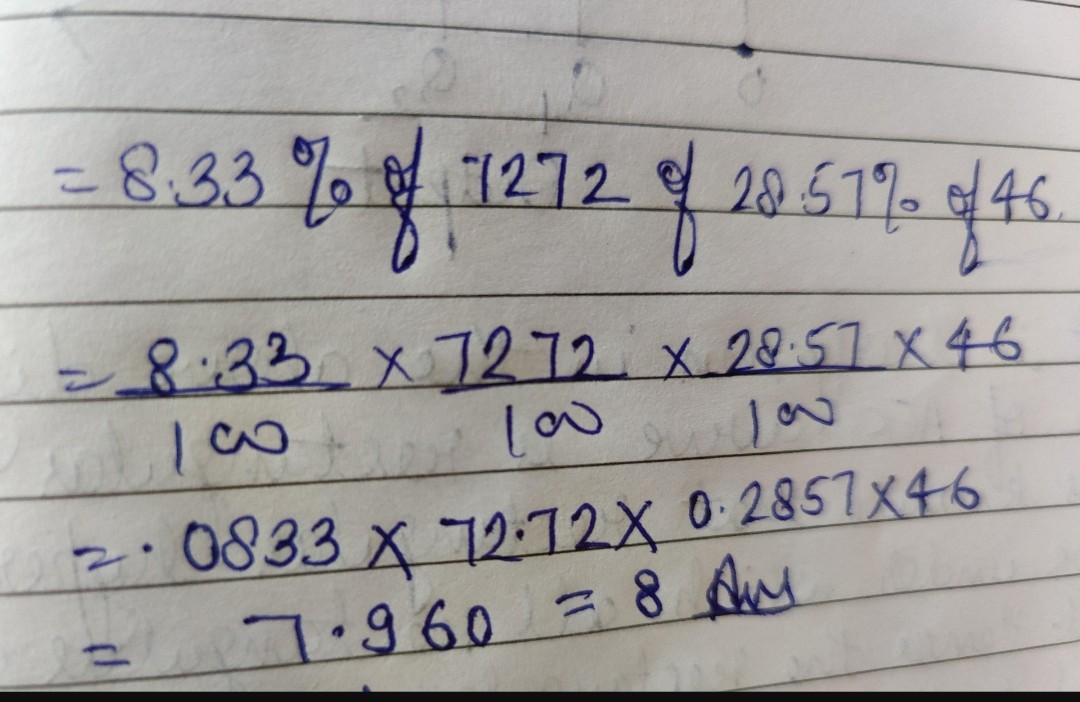 = 8.33 % of 7272 of 28.57% of 46.
= 8.33/100 × 7272/100 × 28.57/100 × 46
= .0833 × 72.72 × 0.2857 × 46
= 7.960 = 8 Ans